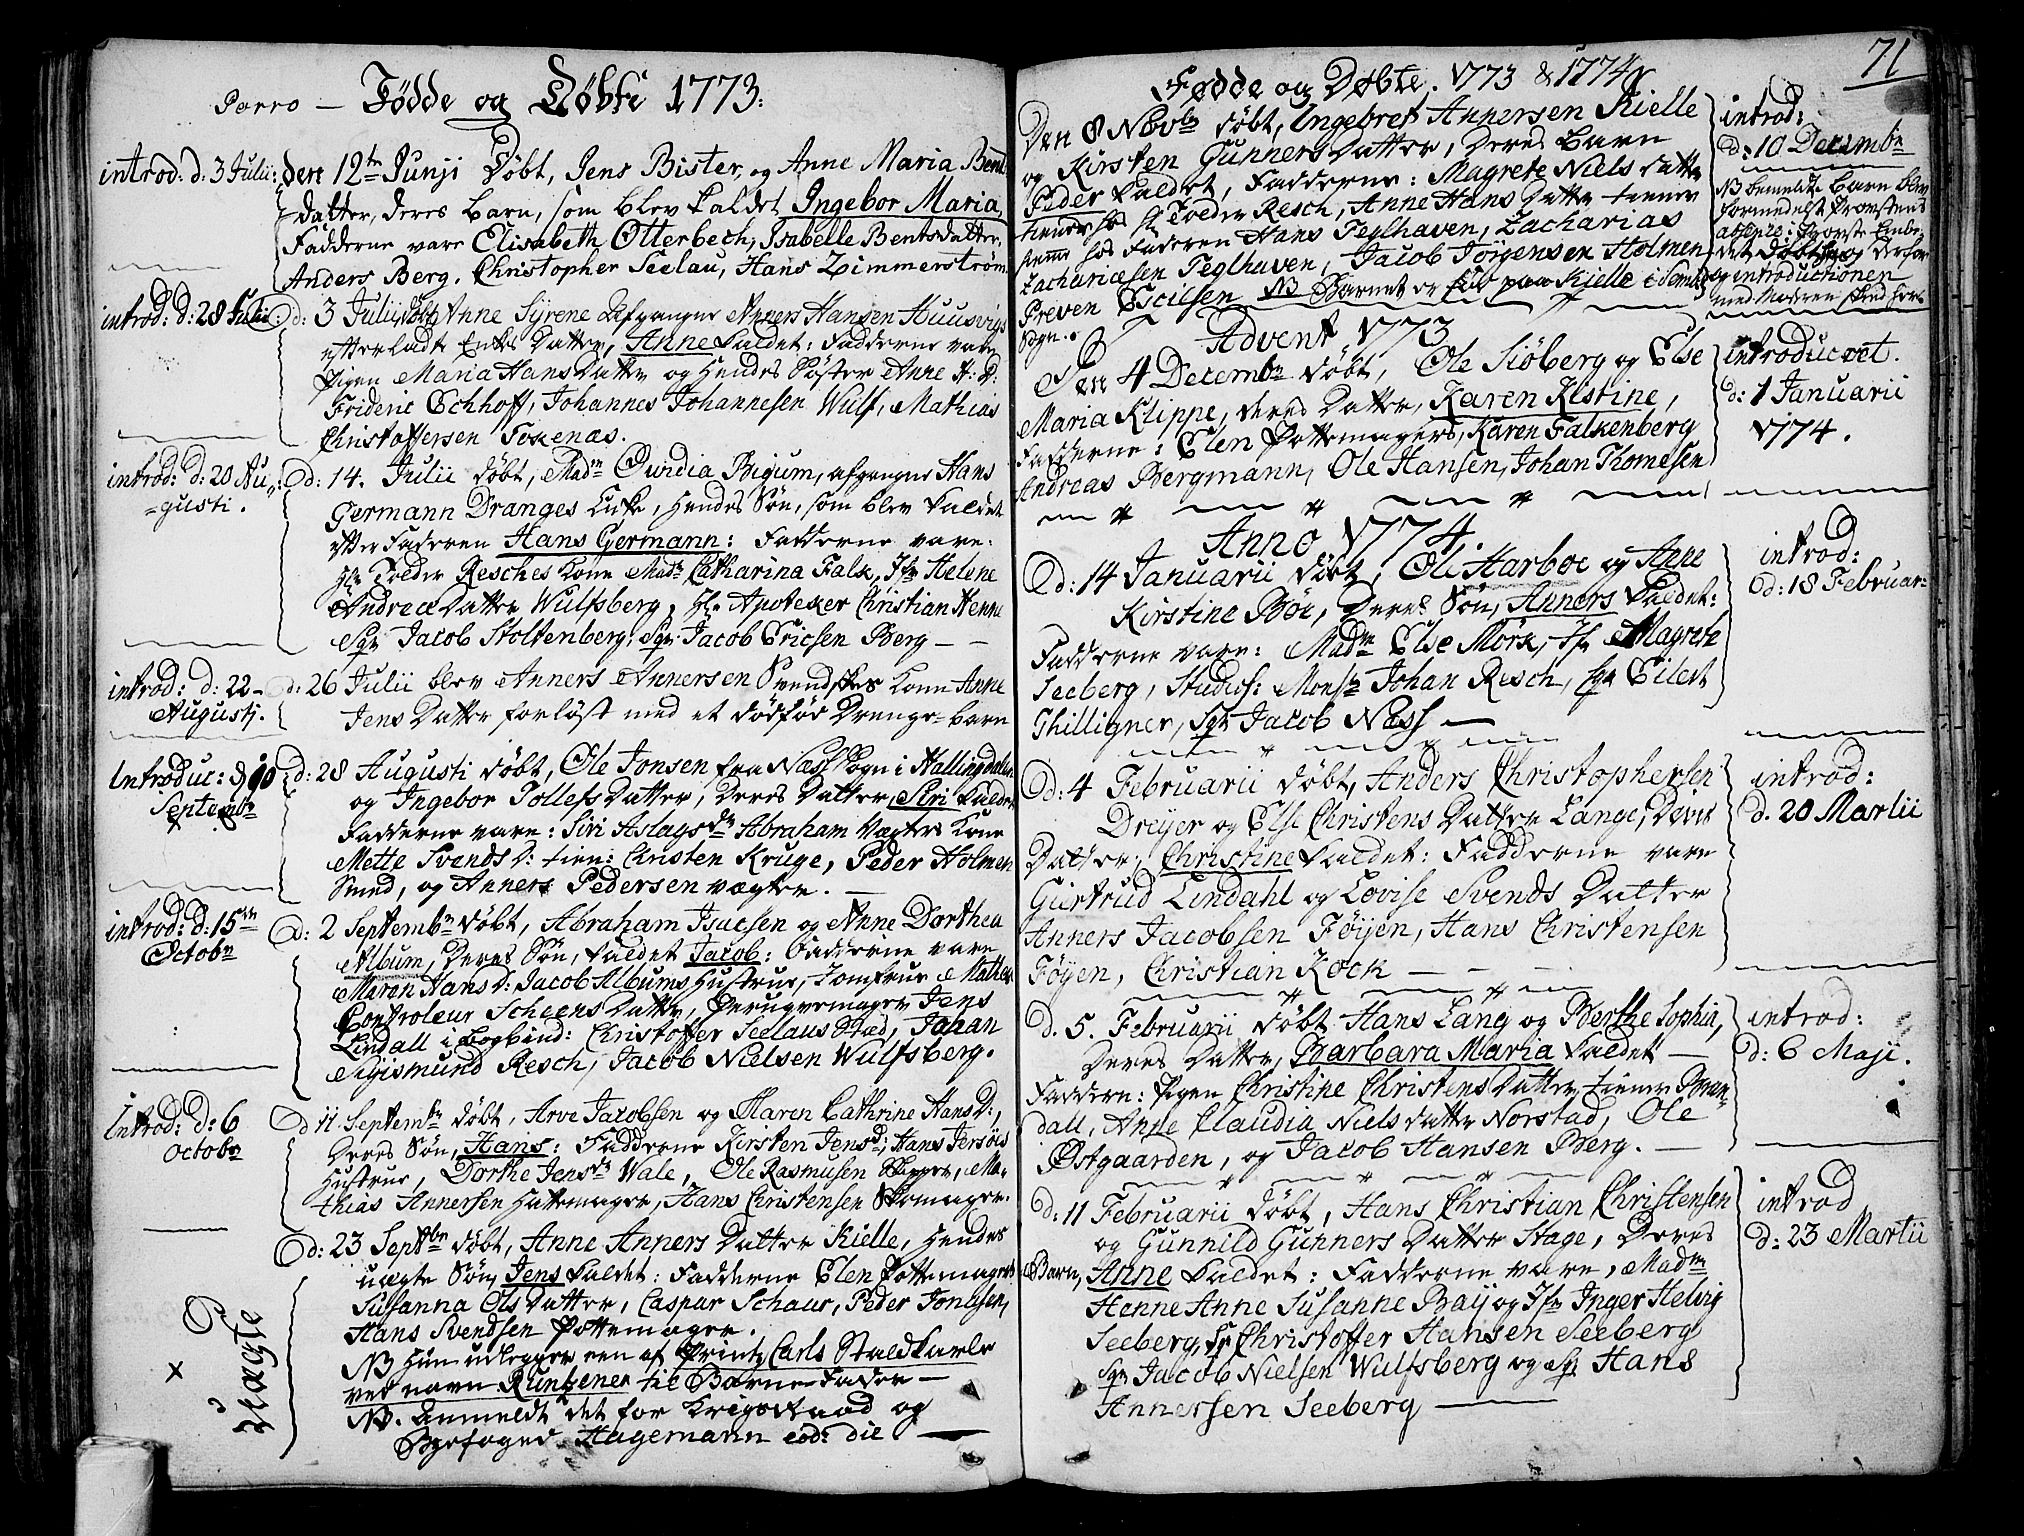 Porro — Födde og Döbte 1773:
introd: d. 3 Julii: den 12te Junji Döbt, Jens Bister, og Anne Maria Bents
datter, deres barn, som blev kaldet Ingebor Maria,
Fadderne vare Elisabeth Otterbech, Isabelle Bentsdatter,
Anders Berg. Christopher Seelau, Hans Zimmerström
introd: d: 28 Julii: d: 3 Julii döbt Anne Syrene Afgangne Anners Hansen Huusvigs
efterladte Enkes Datter, Anne kaldet: Fadderne vare
Pigen Maria Hans Datter og hendes Söster Anne H: D:
Frideric Echhoff, Johannes Johannesen Wulf, Mathias
Christoffersen Foxenæs.
introd: d: 20 Au-
=gusti.
d: 14. Julii döbt, Madm Ovidia Bigum, afgangne Hans
Germann Dranges Enke, hendes Sön, som blev kaldet
efter Faderen Hans Germann: Fadderne vare:
Hr Tolder Resches Kone Madm Catharina Falk, Jfr Helene
Andreæ Datter Wulfsberg, Hr Apoteker Christian Henne
Sgr Jacob Stoltenberg, Sgr Jacob Ericsen Berg — —
introd: d: 22
Augustj.
d: 26 Julii blev Anners Annersen Svendskes Kone Anne
Jens Datter forlöst med et dödföd Drenge=barn
Introduc: d 10
Septembr
d: 28 Augusti döbt, Ole Jonsen fra Næss Sogn i Hallingdalen
og Ingebor Tollefs Datter, deres Datter, Siri kaldet
Fadderne vare: Siri Aslags dr Abraham Vægters Kone
Mette Svends D: tien: Christen Kruge, Peder Holmen
Smed, og Anners Pedersen vægter. —
introd: d: 15tn
Octobr
d: 2 Septembr döbt, Abraham Isacsen og Anne Dorthea
Album, deres Sön, kaldet Jacob: Fadderne vare
Maren Hans D: Jacob Albums Hustrue, Jomfrue Mathea
Controleur Scheens Datter, Peruqvemager Jens
Lindall i Bogbind: Christoffer Seelaus Stæd, Johan
Sigismund Resch, Jacob Nielsen Wulfsberg.
Introd: d: 6
octobr
d 11. Septembr döbt, Arve Jacobsen og Maren Cathrine Hans D:,
deres Sön, Hans: Fadderne Kirsten Jens d: Hans Jersöes
Hustrue, Dorthe Jens dr Wale, Ole Rasmusen Skipper, Ma-
thias Annersen Hattemager, Hans Christensen Skomager.
d: 23 Septbr döbt, Anne Anners Datter Kielle, hendes
uægte Sön, Jens kaldet: Fadderne Elen Pottemagers
Susanna Ols Datter, Caspar Schaur, Peder Jonesen,
Hans Svendsen Pottemager.
Uægte
×
NB hun udlegger een af Printz Carls Staldkarle
ved navn Runtzener til Barne=Fader —
NB. Anmeldt det for Krigsraad og
Byefoged Hagemann eod: die —
71
Fødde og Døbte. 1773 & 1774
Den 8 Novbr döbt, Ingebret Annersen Kielle
og Kirsten Gunners Datter, deres Barn
Peder kaldet, Fadderne: Magrete Niels datter
tiener hos Hr Tolder Resch, Anne Hans Datter tiener
hos Faderen Hans Teglhaven, Zacharias
Zachariæsen Teglhaven, Jacob Jörgensen Holmen
Preven Escilsen NB Barnet er föd paa Kielle i Semb
Sogn.
introd:
d: 10 Decembr
NB bemeldte barn blev
formedelst Provstens
absence:
det döbt og derfor
og introductionen
med Moderen skeed her
Advent 1773
Den 4 Decembr döbt, Ole Siöberg og Else
Maria Klippe, deres Datter, Karen Kistine,
Fadderne: Elen Pottemagers, Karen Falkenberg
Andreas Bergmann, Ole Hansen, Johan Thomesen
introduceret.
d: 1 Januarii
1774.
Anno 1774
d: 14 Januarii döbt, Ole Harboe og Anne
Kirstine Böe, deres Sön, Anners kaldet:
Fadderne vare: Madm Else Mörk, Jfr Magrete
Seeberg, Studios: Monsr Johan Resch, Sgr Eilert
Thilligner, Sgr Jacob Næss —
introd:
d: 18 Februar:
d: 4 Februarii döbt, Anders Christophersen
Dreyer og Else Christens Datter Lange, deres
Datter, Christine kaldet: Fadderne vare
Giertrud Lindahl og Lovise Svends Datter
Anners Jacobsen Föyen, Hans Christensen
Föyen, Christian Kock — — —
introd:
d. 20 Martii
d. 5. Februarii döbt Hans Lang og Berthe Sophia,
deres Datter, Barbara Maria kaldet —
Faddere: Pigen Christine Christens Datter tiener Bran-
dall, Anne Claudia Niels datter Norstad, Ole
Østgaarden, og Jacob Hansen Berg. —
introd:
d: 6 Maji.
d: 11 Februarii döbt, Hans Christian Christensen
og Gunnild Gunners Datter Stage, deres
Barn, Anne kaldet: Fadderne vare, Madm
Henne Anne Susanne Baij og Jfr Inger Helvig
Seeberg, Sr Christoffer Hansen Seeberg
Sgr Jacob Nielsen Wulfsberg og Sgr Hans
Annersen Seeberg —
introd
d: 23 Martii